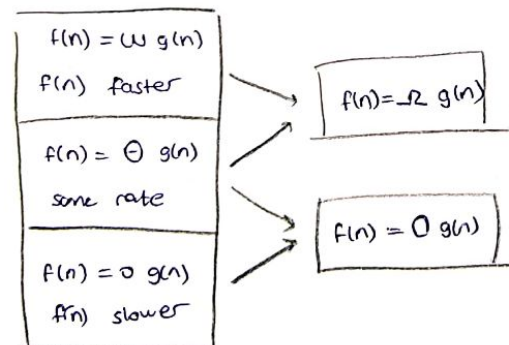 f(n) = ω g(n)
f(n) faster
f(n) = Θ g(n)
same rate
f(n) = o g(n)
f(n) slower
f(n) = Ω g(n)
f(n) = O g(n)